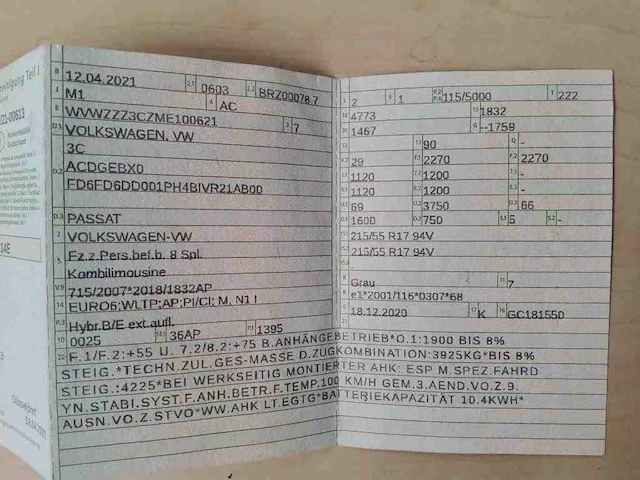 B 12.04.2021 2.1 0603 2.2 BRZ00078 7
J M1 4 AC
E WVWZZZ3CZME100621 3 7
D.1 VOLKSWAGEN, VW
3C
D.2 ACDGEBX0
FD6FD6DD001PH4BIVR21AB00
D.3 PASSAT
2 VOLKSWAGEN-VW
5 Fz.z.Pers.bef.b. 8 Spl.
Kombilimousine
V.9 715/2007*2018/1832AP
14 EURO6;WLTP;AP;PI/CI; M, N1 I
P.3 Hybr.B/E ext.aufl.
10 0025 14.1 36AP P.1 1395
L 2 9 1 P.2 P.4 115/5000 T 222
18 4773 19 1832
20 1467 G --1759
12 - 13 90 Q -
V.7 29 F.1 2270 F.2 2270
7.1 1120 7.2 1200 7.3 -
8.1 1120 8.2 1200 8.3 -
U.1 69 U.2 3750 U.3 66
O.1 1600 O.2 750 S.1 5 S.2 -
15.1 215/55 R17 94V
15.2 215/55 R17 94V
15.3 -
R Grau 11 7
K e1*2001/116*0307*68
6 18.12.2020 17 K 16 GC181550
22 F.1/F.2:+55 U. 7.2/8.2:+75 B.ANHÄNGEBETRIEB*O.1:1900 BIS 8%
STEIG.*TECHN.ZUL.GES-MASSE D.ZUGKOMBINATION:3925KG*BIS 8%
STEIG.:4225*BEI WERKSEITIG MONTIERTER AHK: ESP M.SPEZ.FAHRD
YN.STABI.SYST.F.ANH.BETR.F.TEMP.100 KM/H GEM.3.AEND.VO.Z.9.
AUSN.VO.Z.STVO*WW.AHK LT.EGTG*BATTERIEKAPAZITÄT 10.4KWH*